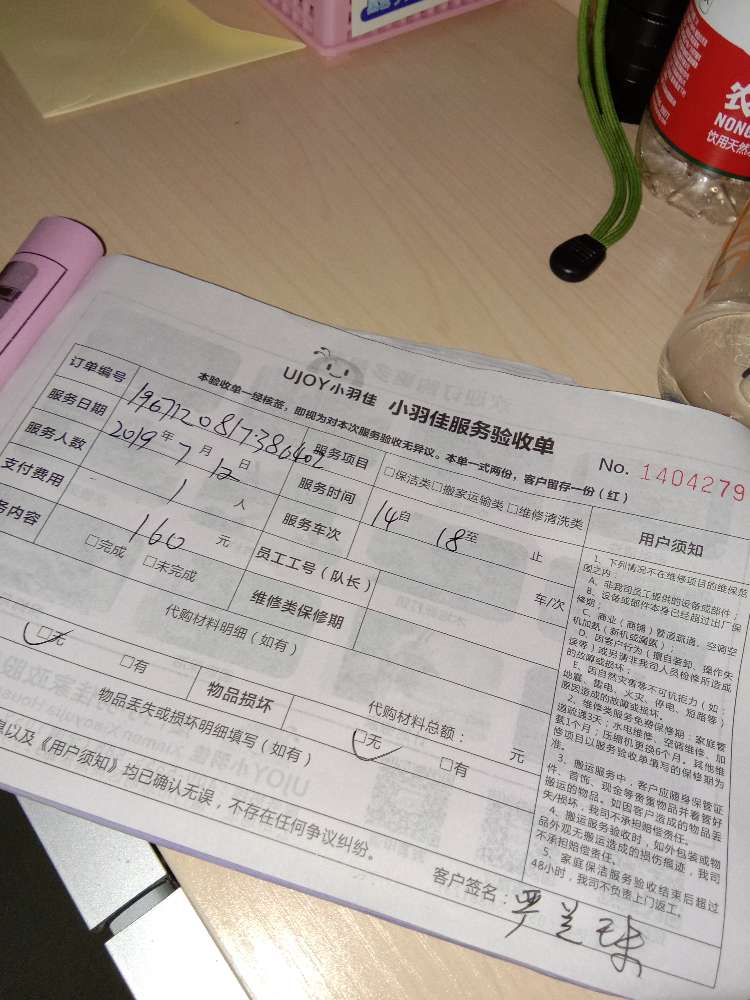 农
NONG
饮用天然
UJOY小羽佳 小羽佳服务验收单
No. 1404279
本验收单一经核签，即视为对本次服务验收无异议。本单一式两份，客户留存一份（红）
订单编号
服务项目 □保洁类□搬家运输类□维修清洗类
服务日期 2019年7月12日 服务时间 14自 18至 止
服务人数 1人 服务车次 车/次
支付费用 160元 员工工号（队长）
务内容 □完成 □未完成 维修类保修期
代购材料明细（如有）
代购材料总额： 元
□无 □有 物品损坏 □无 □有
物品丢失或损坏明细填写（如有）
以及《用户须知》均已确认无误，不存在任何争议纠纷。
客户签名：严兰球
用户须知
1、下列情况不在维修项目的维保范围之内：
A、非我司员工提供的设备或部件；
B、设备或部件本身已经超过出厂保修期；
C、商业（商铺）管道疏通、空调空机加氨（新机或搬家）；
D、因客户行为（擅自装卸、操作失误等）或另请非我司人员检修所造成的故障或损坏；
E、因自然灾害等不可抗拒力（如：地震、雷电、火灾、停电、短路等）原因造成的故障或损坏。
2、维修类服务免费保修期：家庭管道疏通3天；水电维修、空调维修、加氨1个月；压缩机更换6个月。其他维修项目以服务验收单填写的保修期为准。
3、搬运服务中，客户应随身保管证件、首饰、现金等贵重物品并看管好搬运的物品。如因客户造成的物品丢失/损坏，我司不承担赔偿责任。
4、搬运服务验收时，如外包装或物品外观无搬运造成的损伤痕迹，我司不承担赔偿责任。
5、家庭保洁服务验收结束后超过48小时，我司不负责上门返工。